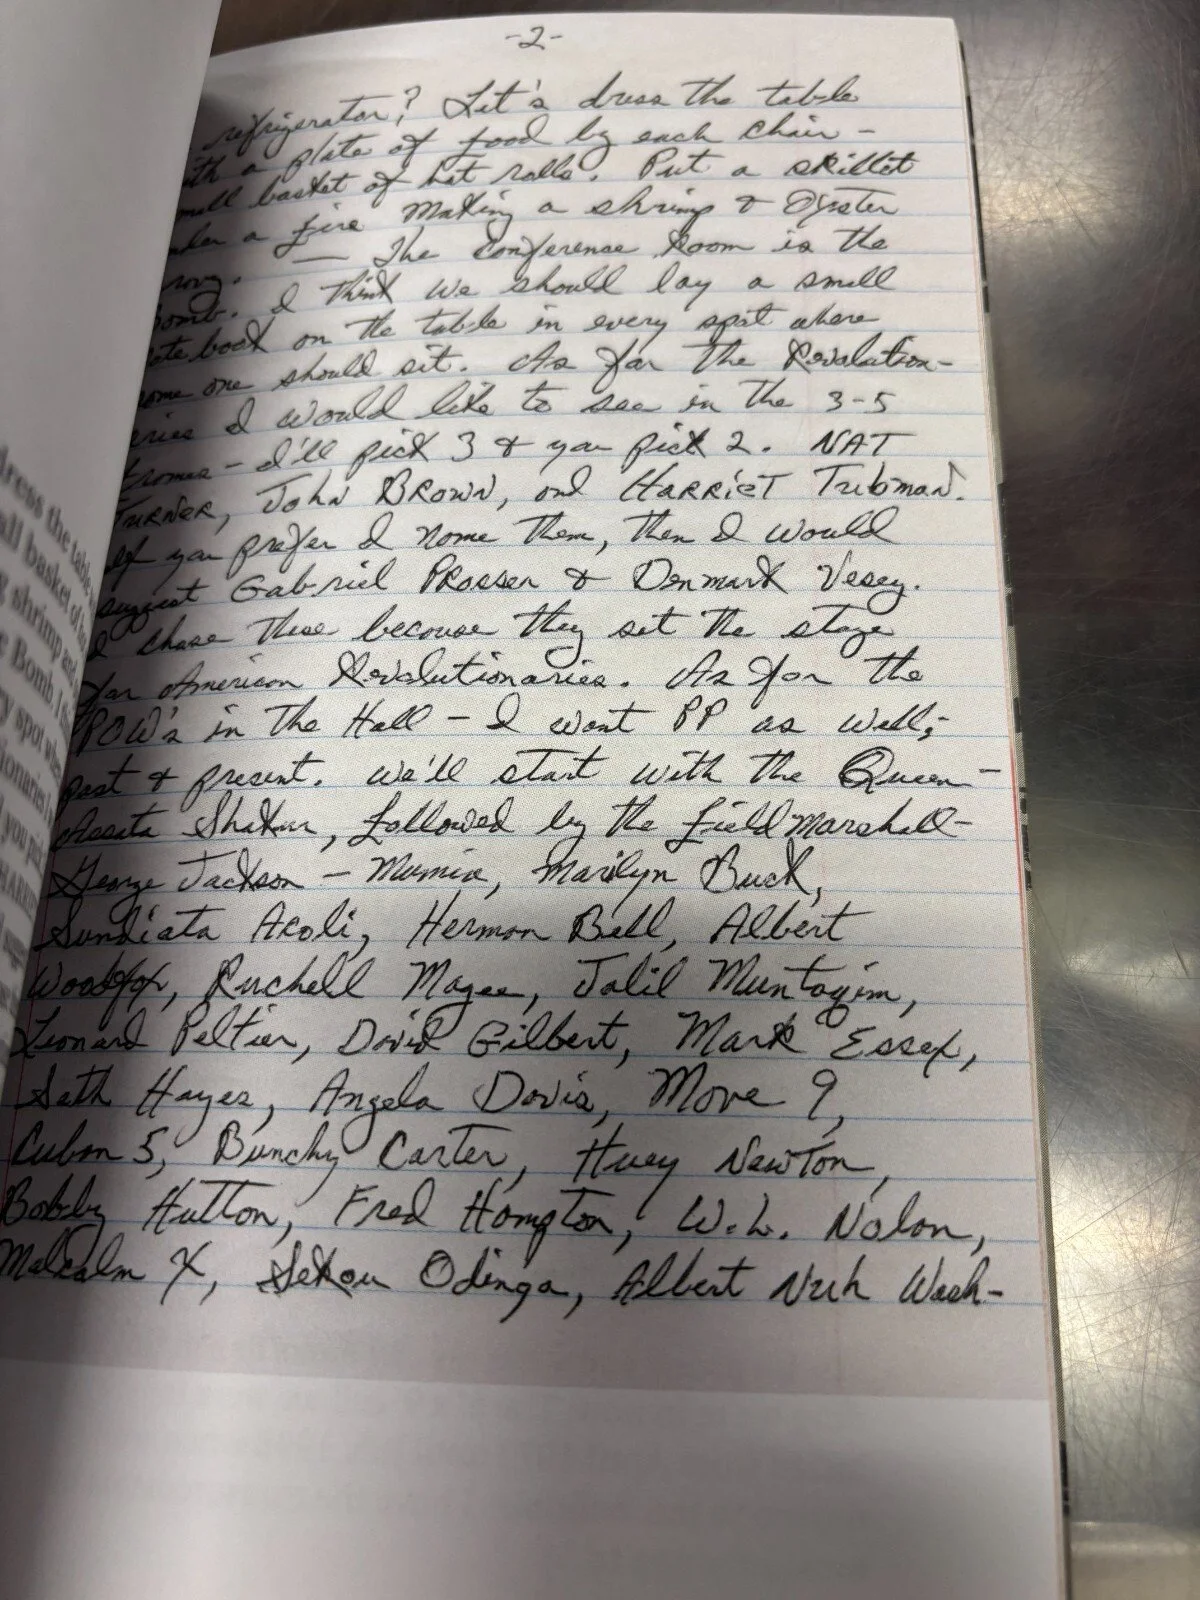 -2-
refrigerator? Let's dress the table
ith a plate of food by each chair -
mall basket of hot rolls. Put a skillet
nder a fire making a shrimp & Oyster
 — The Conference Room is the
Bomb. I think we should lay a small
ote book on the table in every spot where
some one should sit. As for the Revolution-
aries I would like to see in the 3-5
frames - I'll pick 3 & you pick 2. NAT
TURNER, John BROWN, and HARRIET Tubman.
If you prefer I name them, then I would
suggest Gabriel Prosser & Denmark Vesey.
I chose these because they set the stage
for American Revolutionaries. As for the
POW's in the Hall - I want PP as well;
past & present. We'll start with the Queen -
Assata Shakur, followed by the field Marshall -
George Jackson - Mumia, Marilyn Buck,
Sundiata Acoli, Herman Bell, Albert
Woodfox, Ruchell Magee, Jalil Muntaqim,
Leonard Peltier, David Gilbert, Mark Essex,
Seth Hayes, Angela Davis, Move 9,
Cuban 5, Bunchy Carter, Huey Newton,
Bobby Hutton, Fred Hampton, W.L. Nolan,
Malcalm X, Sekou Odinga, Albert Nuh Wash-
dress the table
all basket of
g shrimp and
Bomb. I
y spot
ionaries
you